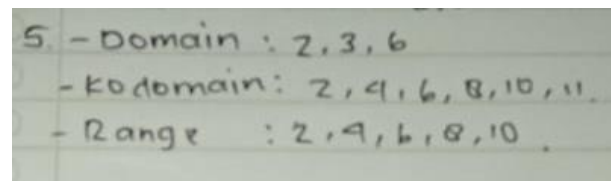 5. - Domain : 2, 3, 6
- Kodomain : 2, 4, 6, 8, 10, 11.
- Range : 2, 4, 6, 8, 10.